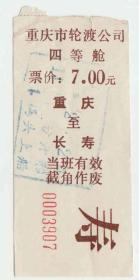 重庆市轮渡公司
四等舱
票价:7.00元
重庆
至
长寿
当班有效
截角作废
0003907
寿